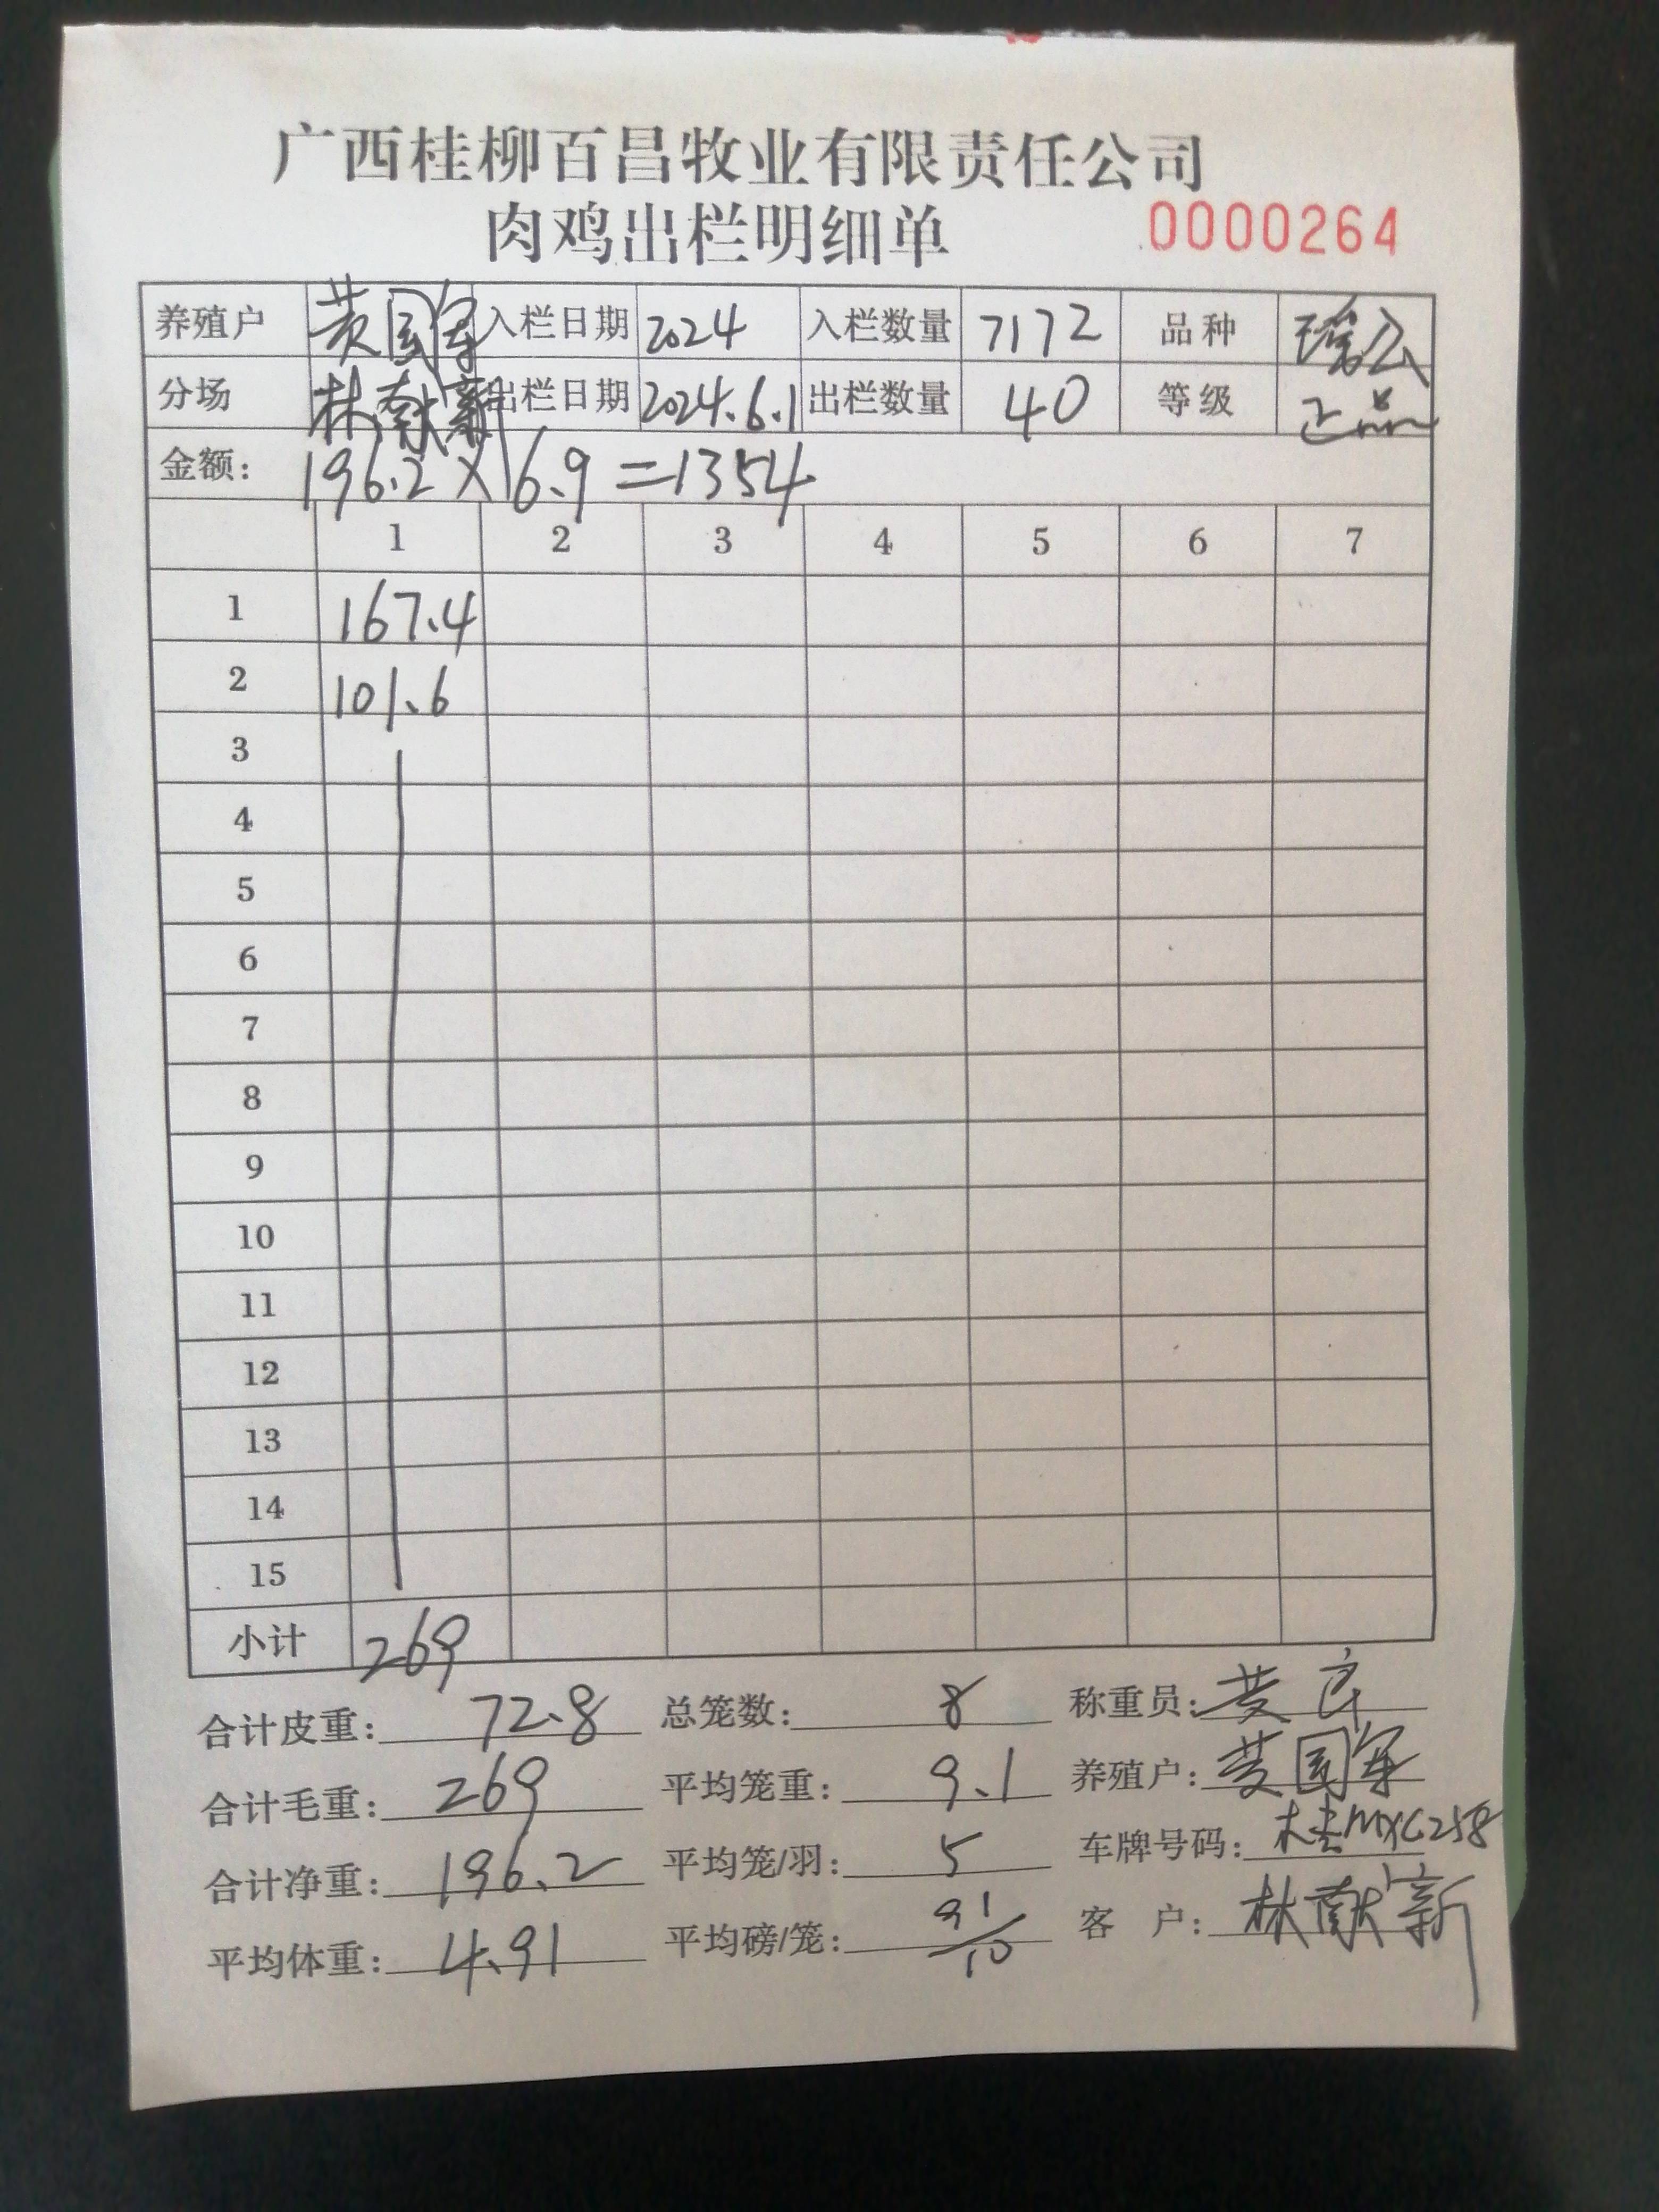 广西桂柳百昌牧业有限责任公司
肉鸡出栏明细单 0000264
养殖户 黄国军 入栏日期 2024 入栏数量 7172 品种 瑞公
分场 林献新 出栏日期 2024.6.1 出栏数量 40 等级 正品
金额: 196.2×6.9=1354
1 2 3 4 5 6 7
1 167.4
2 101.6
3
4
5
6
7
8
9
10
11
12
13
14
15
小计 269
合计皮重: 72.8 总笼数: 8 称重员: 黄
合计毛重: 269 平均笼重: 9.1 养殖户: 黄国军
合计净重: 196.2 平均笼/羽: 5 车牌号码: 桂MXC258
平均体重: 4.91 平均磅/笼: 91/10 客 户: 林献新